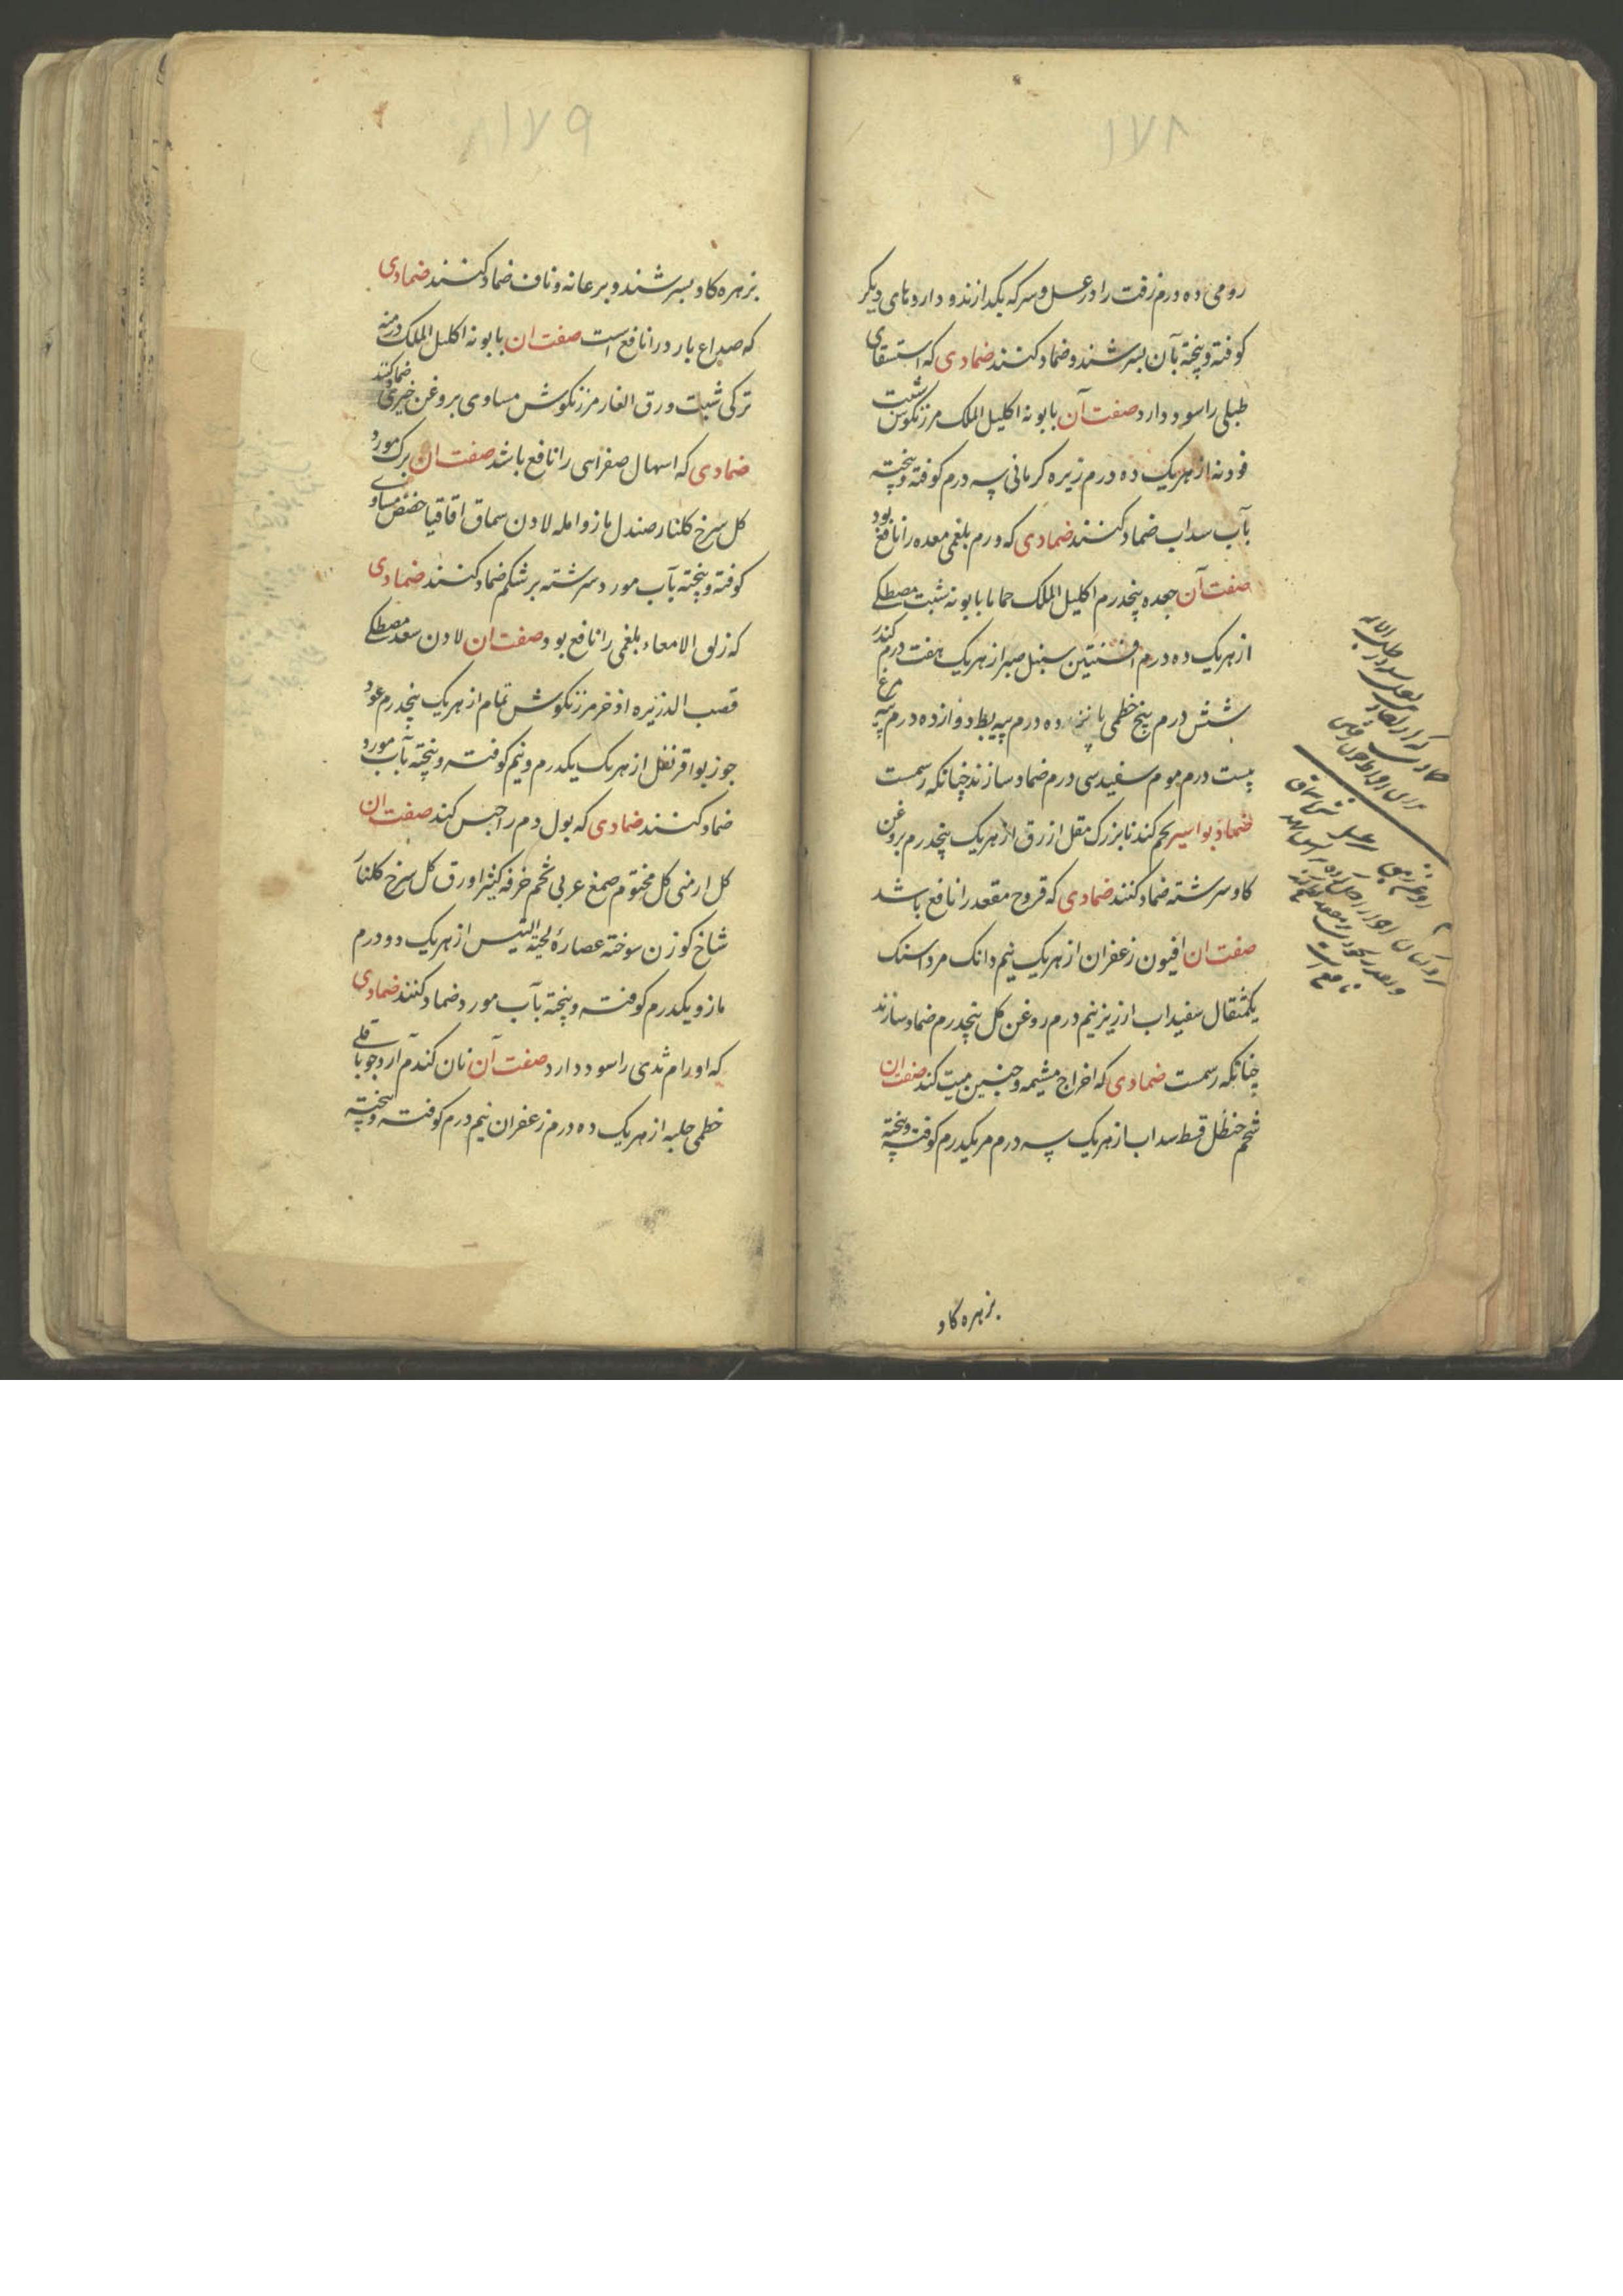 ۱۷۸
رومی ده درم زفت را در عسل و سرکه بکدازند و داروهای دیکر
کوفته و پخته بآن بسرشند و ضماد کنند ضمادی که استسقای
طبلی را سود دارد صفت آن بابونه اکلیل الملک مرزنکوش شبت
فودنه از هریک ده درم زیره کرمانی سه درم کوفته و پخته
بآب سداب ضماد کنند ضمادی که ورم بلغمی معده را نافع بود
صفت آن جعده پنجدرم اکلیل الملک حماما بابونه شبت مصطکی
از هریک ده درم افسنتین سنبل صبر از هریک هفت درم کندر
شش درم بیخ خطمی پانزده درم پیه بط دوازده درم پیه مرغ
بیست درم موم سفید سی درم ضماد سازند چنانکه رسمست
ضماد بواسیر تخم کندنا بزرک مقل ازرق از هریک پنجدرم بروغن
کاو سرشته ضماد کنند ضمادی که قروح مقعد را نافع باشد
صفت ان افیون زعفران از هریک نیم دانک مرداسنک
یکمثقال سفیداب ارزیز نیم درم روغن کل پنجدرم ضماد سازند
چنانکه رسمست ضمادی که اخراج مشیمه و جنین میت کند صفت ان
شحم حنظل قسط سداب از هریک سه درم مر یکدرم کوفته و پخته
بزهره کاو
۱۷۹
بزهره کاو بسرشند و بر عانه و ناف ضماد کنند ضمادی
که صداع بارد را نافع است صفت ان بابونه اکلیل الملک درمنه
ترکی شبت ورق الغار مرزنکوش مساوی بروغن خیری ضماد کنند
ضمادی که اسهال صفرایی را نافع باشد صفت ان برک مورد
کل سرخ کلنار صندل مازو امله لادن سماق اقاقیا حضض مساوی
کوفته و پخته بآب مورد سرشته بر شکم ضماد کنند ضمادی
که زلق الامعاء بلغمی را نافع بود صفت ان لادن سعد مصطکی
قصب الذریره اذخر مرزنکوش تمام از هریک پنجدرم عود
جوزبوا قرنفل از هریک یکدرم و نیم کوفته و پخته بآب مورد
ضماد کنند ضمادی که بول دم را حبس کند صفت ان
کل ارمنی کل مختوم صمغ عربی تخم خرفه کثیرا ورق کل سرخ کلنار
شاخ کوزن سوخته عصارهٔ لحیة التیس از هریک دو درم
مازو یکدرم کوفته و پخته بآب مورد ضماد کنند ضمادی
که اورام ثدی را سود دارد صفت آن نان کندم آرد جو باقلی
خطمی حلبه از هریک ده درم زعفران نیم درم کوفته و پخته